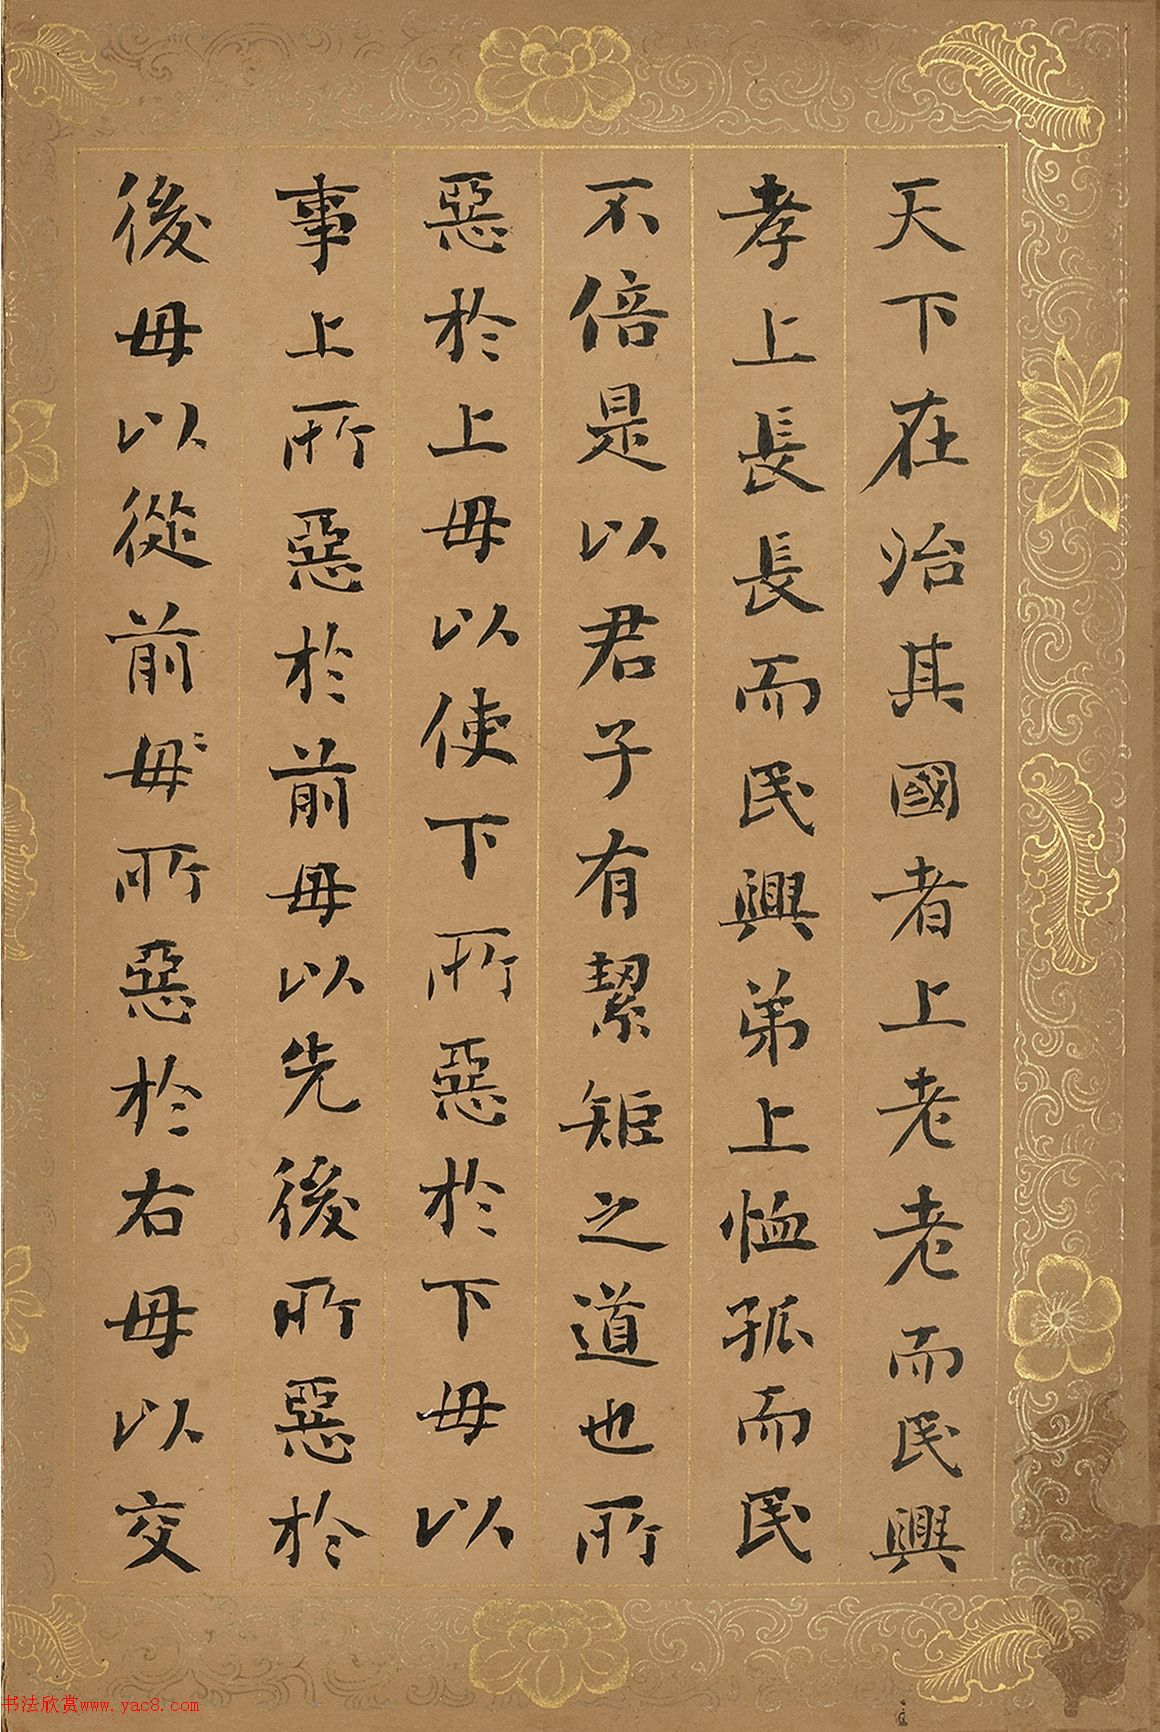 天下在治其國者上老老而民興
孝上長長而民興弟上恤孤而民
不倍是以君子有絜矩之道也所
惡於上毋以使下所惡於下毋以
事上所惡於前毋以先後所惡於
後毋以從前毋所惡於右毋以交
书法欣赏www.yac8.com